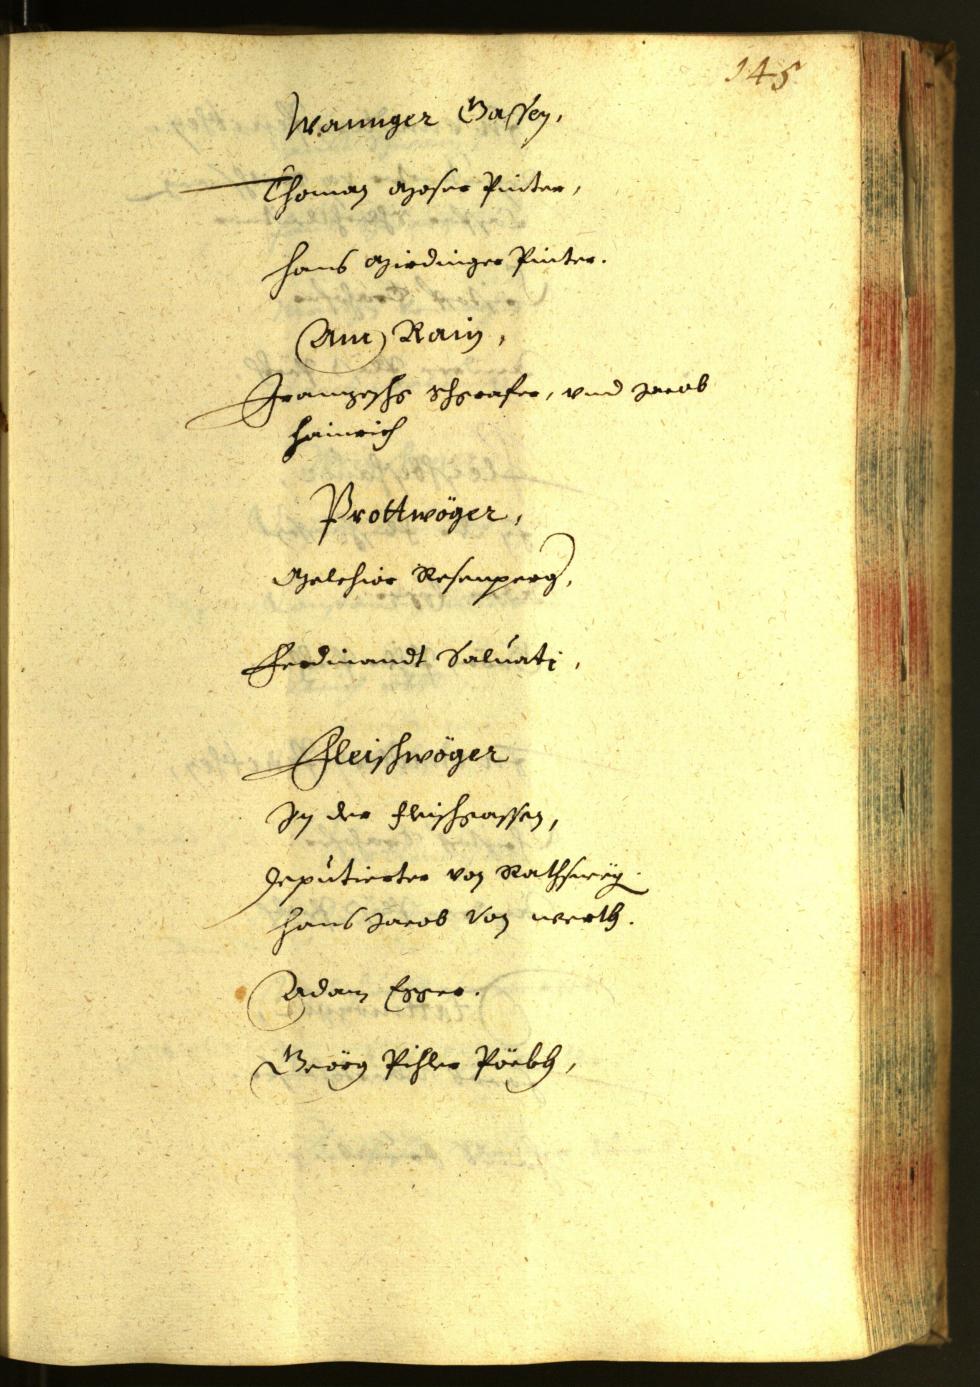 145
Wannger Gassen,
Thoman Moser Pinter,
Hans Mirdinger Pinter.
Am Rain,
Franzeschg Schgrafer, vnd Jacob
Hainrich
Prottwöger,
Melchior Rosenperg,
Ferdinandt Saluati,
Fleischwöger
In der Fleischgassen,
Deputierter von Rathswëg.
Hans Jacob Von werth.
Adam Egger.
Geörg Pihler Pöckh,